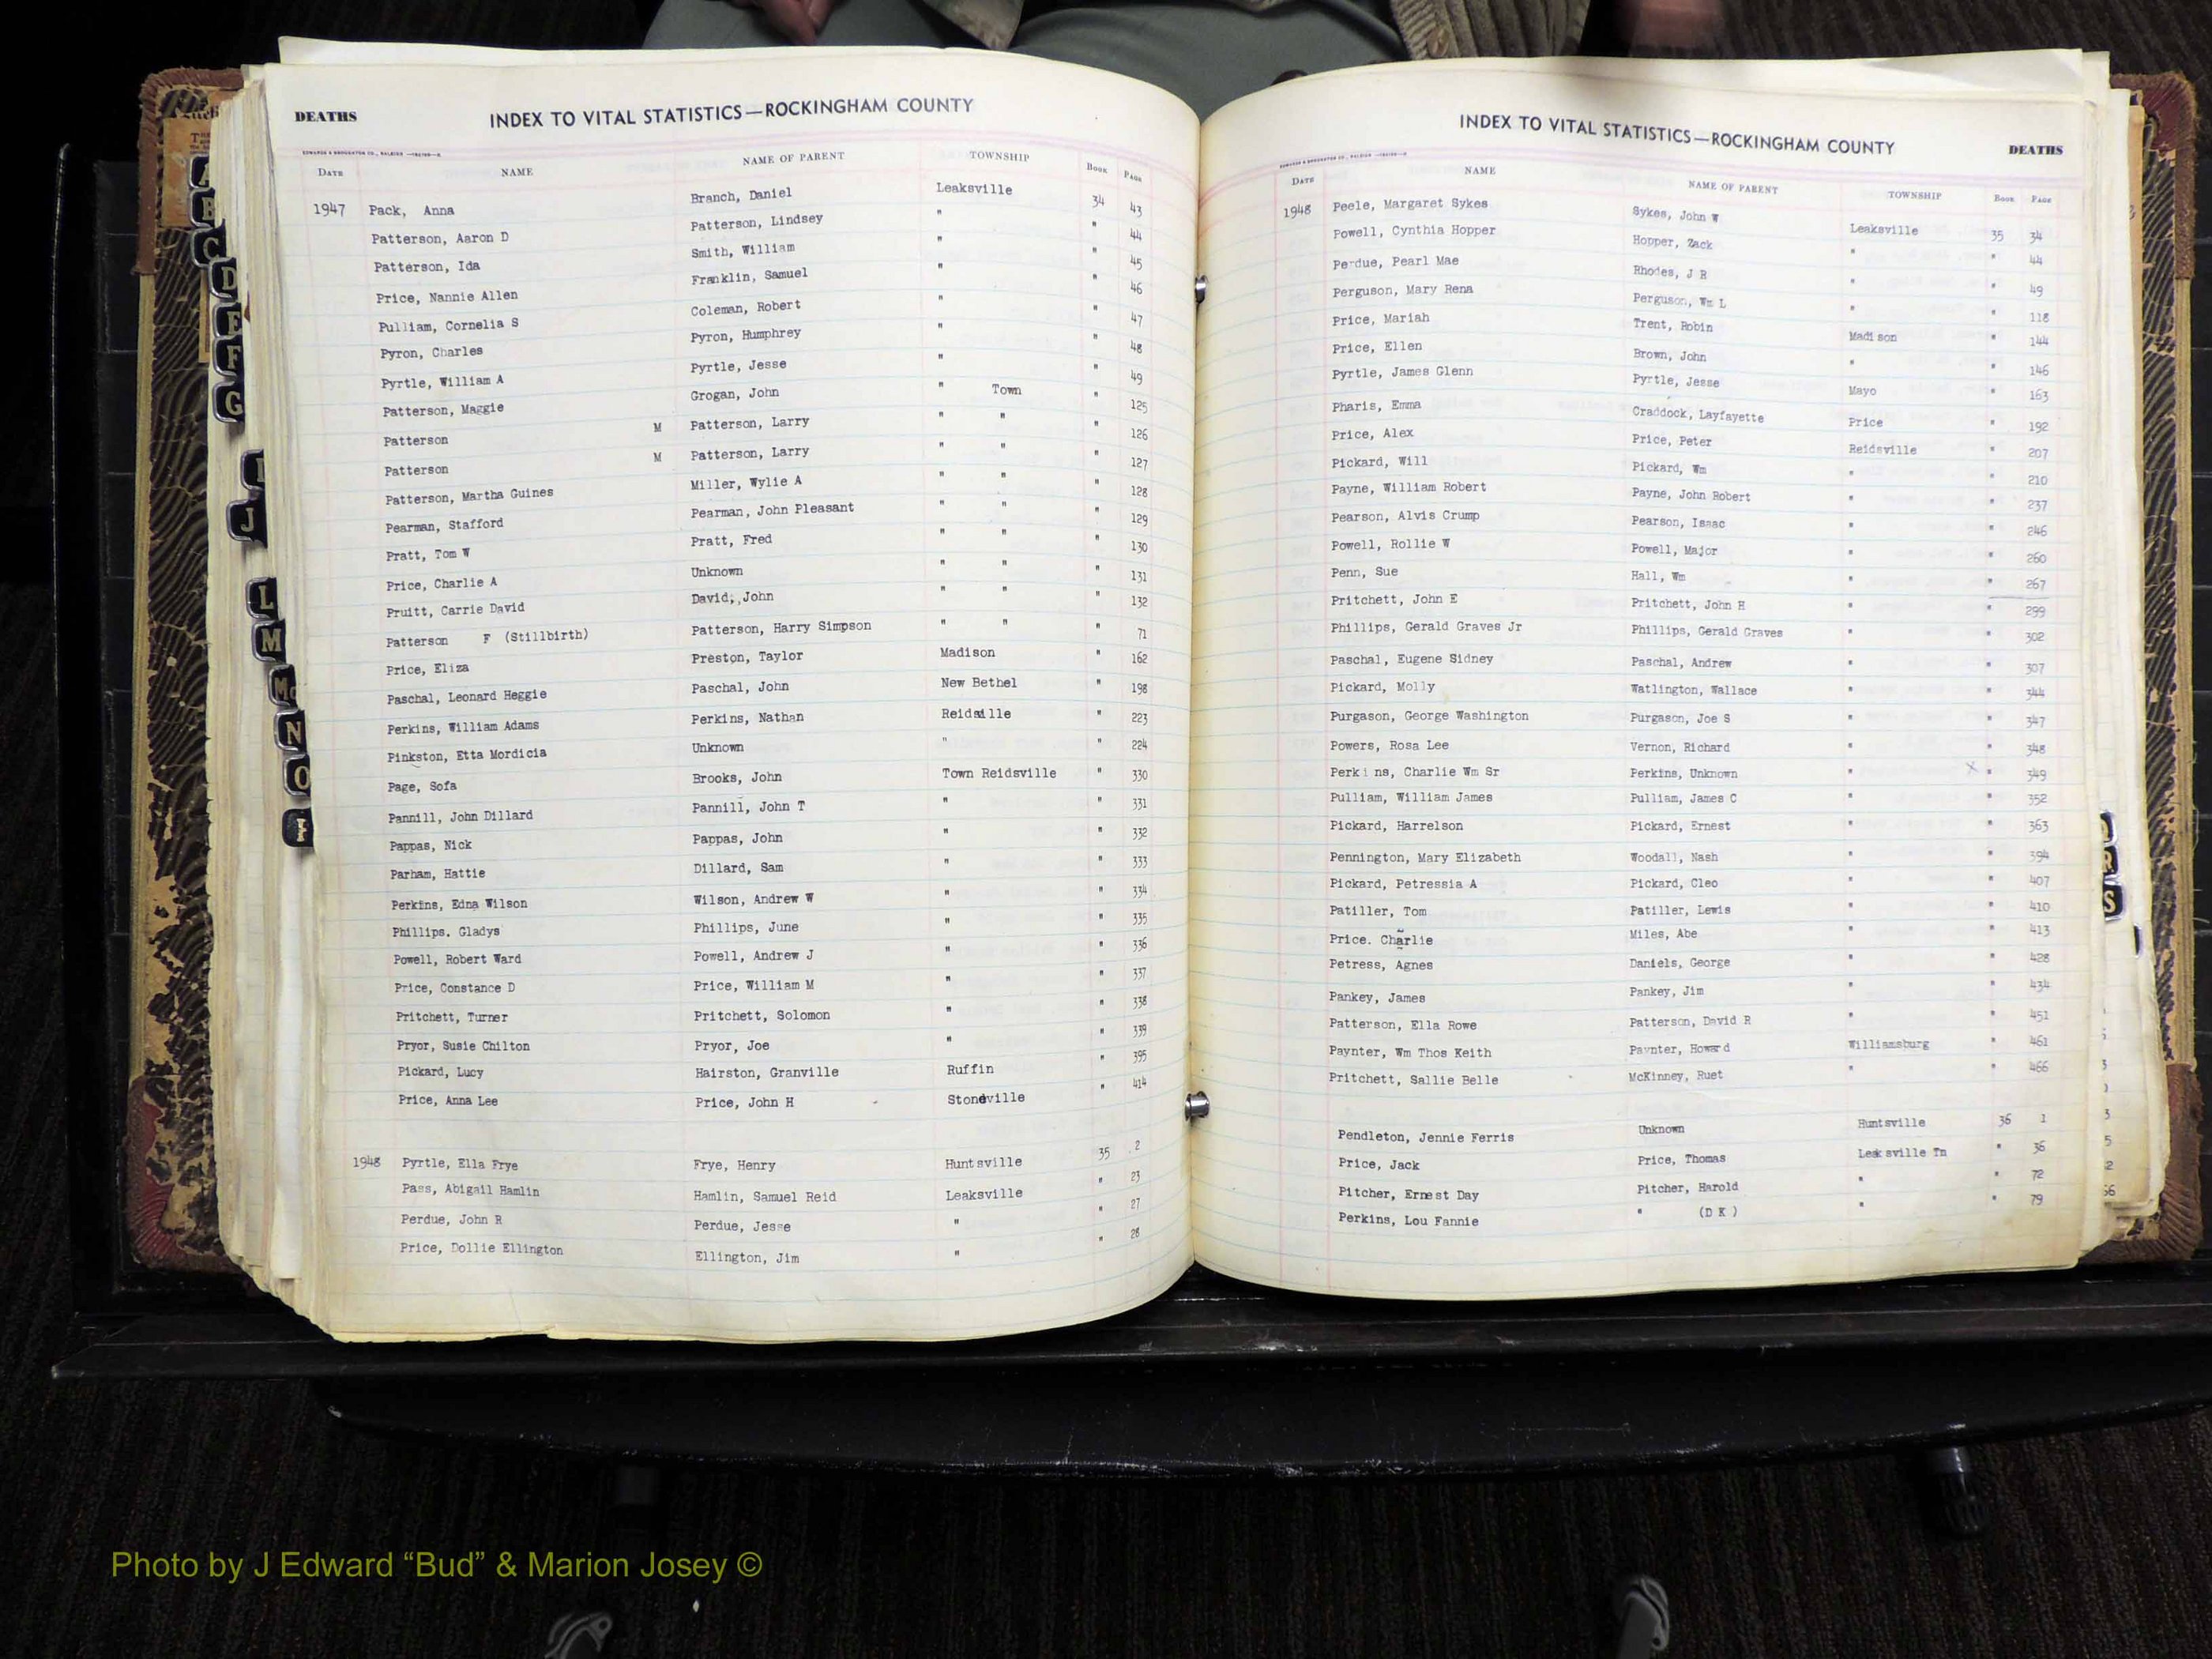 DEATHS INDEX TO VITAL STATISTICS—ROCKINGHAM COUNTY
EDWARDS & BROUGHTON CO., RALEIGH
DATE NAME NAME OF PARENT TOWNSHIP Book PAGE
1947 Pack, Anna Branch, Daniel Leaksville 34 43
Patterson, Aaron D Patterson, Lindsey " " 44
Patterson, Ida Smith, William " " 45
Price, Nannie Allen Franklin, Samuel " " 46
Pulliam, Cornelia S Coleman, Robert " " 47
Pyron, Charles Pyron, Humphrey " " 48
Pyrtle, William A Pyrtle, Jesse " " 49
Patterson, Maggie Grogan, John " Town " 125
Patterson M Patterson, Larry " " " 126
Patterson M Patterson, Larry " " " 127
Patterson, Martha Guines Miller, Wylie A " " " 128
Pearman, Stafford Pearman, John Pleasant " " " 129
Pratt, Tom W Pratt, Fred " " " 130
Price, Charlie A Unknown " " " 131
Pruitt, Carrie David David, John " " " 132
Patterson F (Stillbirth) Patterson, Harry Simpson " " " 71
Price, Eliza Preston, Taylor Madison " 162
Paschal, Leonard Heggie Paschal, John New Bethel " 198
Perkins, William Adams Perkins, Nathan Reidsille " 223
Pinkston, Etta Mordicia Unknown " " 224
Page, Sofa Brooks, John Town Reidsville " 330
Pannill, John Dillard Pannill, John T " " 331
Pappas, Nick Pappas, John " " 332
Parham, Hattie Dillard, Sam " " 333
Perkins, Edna Wilson Wilson, Andrew W " " 334
Phillips. Gladys Phillips, June " " 335
Powell, Robert Ward Powell, Andrew J " " 336
Price, Constance D Price, William M " " 337
Pritchett, Turner Pritchett, Solomon " " 338
Pryor, Susie Chilton Pryor, Joe " " 339
Pickard, Lucy Hairston, Granville Ruffin " 395
Price, Anna Lee Price, John H Stoneville " 414
1948 Pyrtle, Ella Frye Frye, Henry Huntsville 35 2
Pass, Abigail Hamlin Hamlin, Samuel Reid Leaksville " 23
Perdue, John R Perdue, Jesse " " 27
Price, Dollie Ellington Ellington, Jim " " 28
INDEX TO VITAL STATISTICS—ROCKINGHAM COUNTY DEATHS
EDWARDS & BROUGHTON CO., RALEIGH
DATE NAME NAME OF PARENT TOWNSHIP Book PAGE
1948 Peele, Margaret Sykes Sykes, John W Leaksville 35 34
Powell, Cynthia Hopper Hopper, Zack " " 44
Perdue, Pearl Mae Rhodes, J R " " 49
Perguson, Mary Rena Perguson, Wm L " " 118
Price, Mariah Trent, Robin Madison " 144
Price, Ellen Brown, John " " 146
Pyrtle, James Glenn Pyrtle, Jesse Mayo " 163
Pharis, Emma Craddock, Layfayette Price " 192
Price, Alex Price, Peter Reidsville " 207
Pickard, Will Pickard, Wm " " 210
Payne, William Robert Payne, John Robert " " 237
Pearson, Alvis Crump Pearson, Isaac " " 246
Powell, Rollie W Powell, Major " " 260
Penn, Sue Hall, Wm " " 267
Pritchett, John E Pritchett, John H " " 299
Phillips, Gerald Graves Jr Phillips, Gerald Graves " " 302
Paschal, Eugene Sidney Paschal, Andrew " " 307
Pickard, Molly Watlington, Wallace " " 344
Purgason, George Washington Purgason, Joe S " " 347
Powers, Rosa Lee Vernon, Richard " " 348
Perkins, Charlie Wm Sr Perkins, Unknown " x " 349
Pulliam, William James Pulliam, James C " " 352
Pickard, Harrelson Pickard, Ernest " " 363
Pennington, Mary Elizabeth Woodall, Nash " " 394
Pickard, Petressia A Pickard, Cleo " " 407
Patiller, Tom Patiller, Lewis " " 410
Price. Charlie Miles, Abe " " 413
Petress, Agnes Daniels, George " " 428
Pankey, James Pankey, Jim " " 434
Patterson, Ella Rowe Patterson, David R " " 451
Paynter, Wm Thos Keith Paynter, Howard Williamsburg " 461
Pritchett, Sallie Belle McKinney, Ruet " " 466
Pendleton, Jennie Ferris Unknown Huntsville 36 1
Price, Jack Price, Thomas Leaksville Tn " 36
Pitcher, Ernest Day Pitcher, Harold " " 72
Perkins, Lou Fannie " (D K ) " " 79
A
B
C
D
E
F
G
I
J
L
M
Mc
N
O
R
S
Photo by J Edward “Bud” & Marion Josey ©